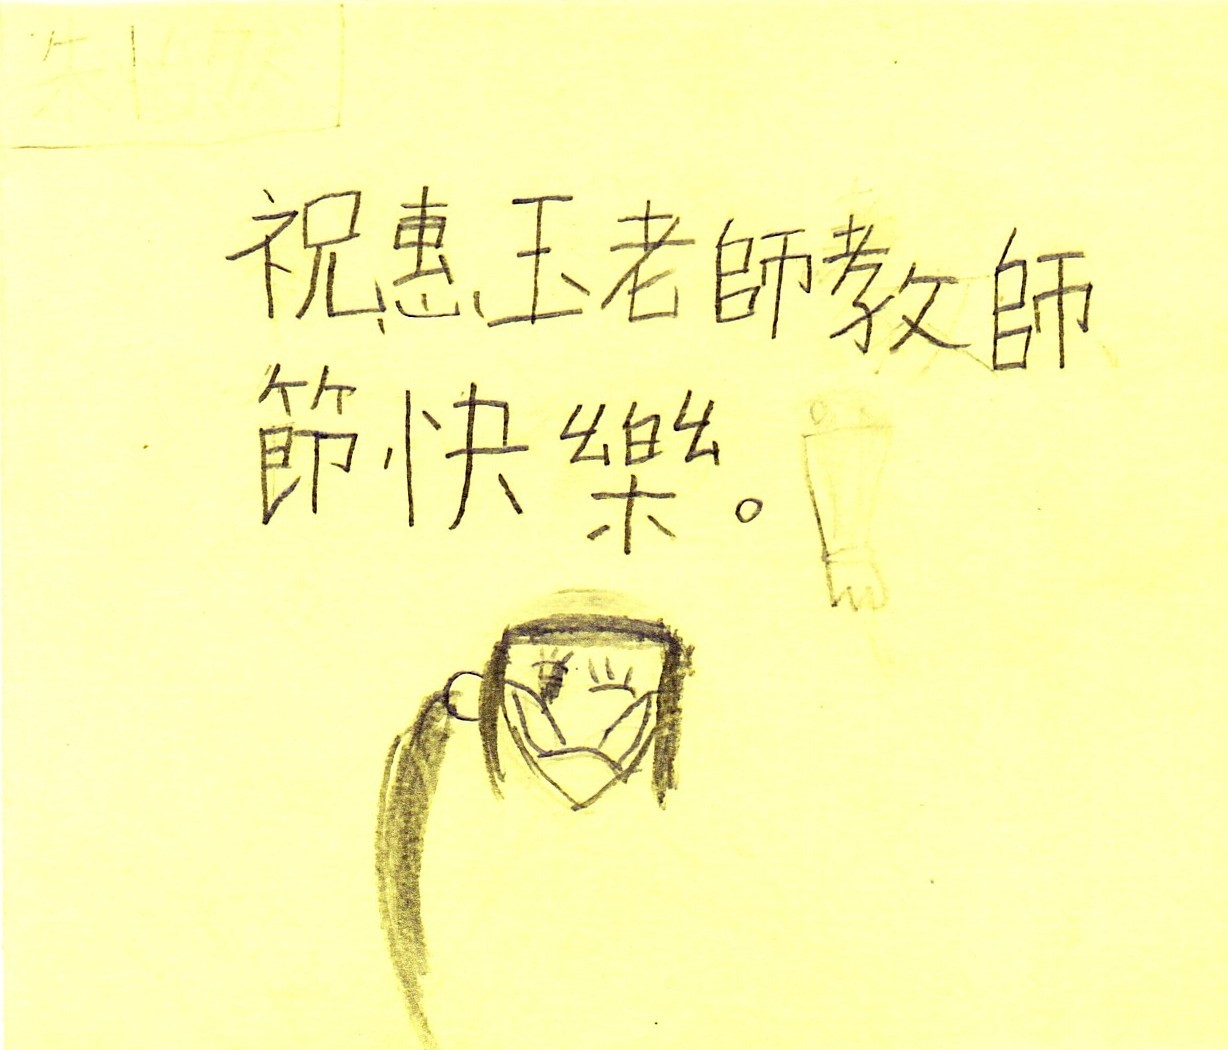 祝惠玉老師教師
節快樂。